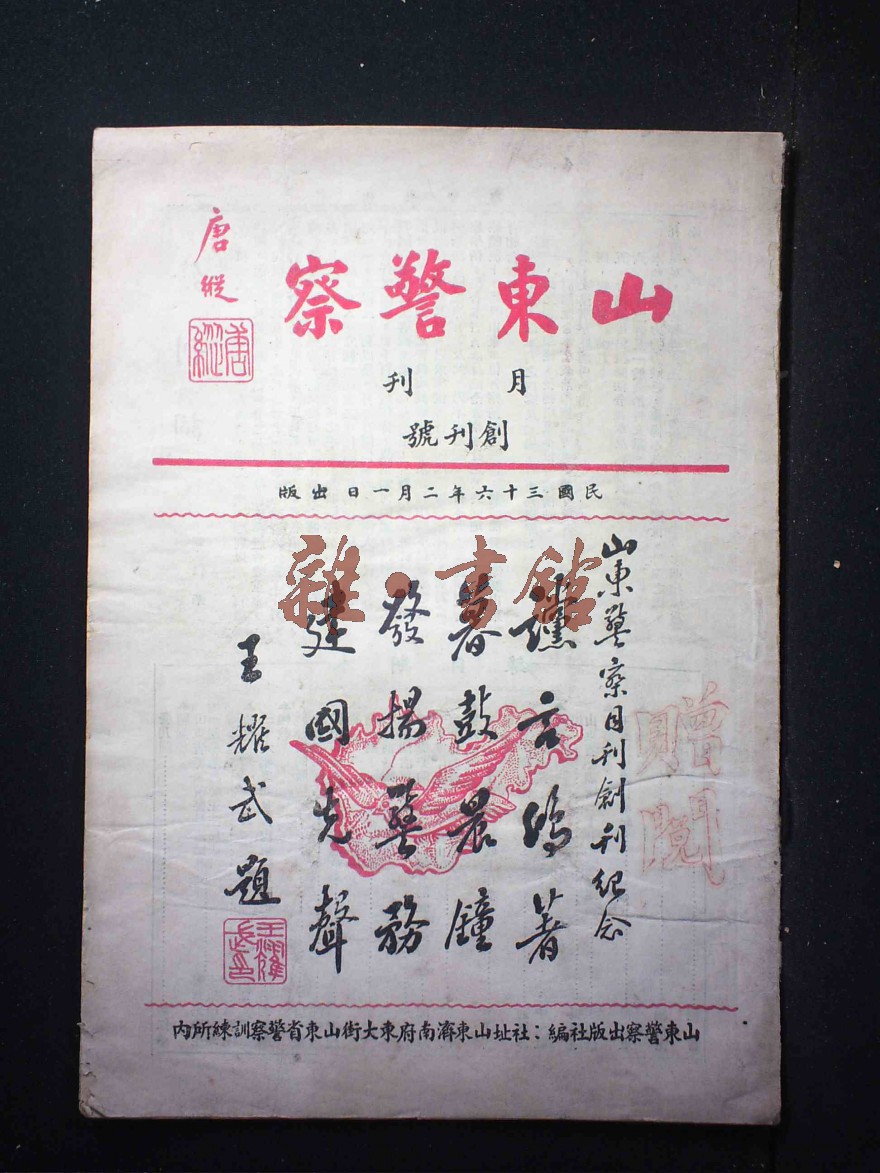 山東警察
唐縱
唐縱
月刊
創刊號
民國三十六年二月一日出版
雜·書館
山東警察月刊創刊紀念
讜言鴻著
暮鼓晨鐘
發揚警務
建國先聲
王耀武題
贈閱
山東警察出版社編：社址山東濟南府東大街山東省警察訓練所內